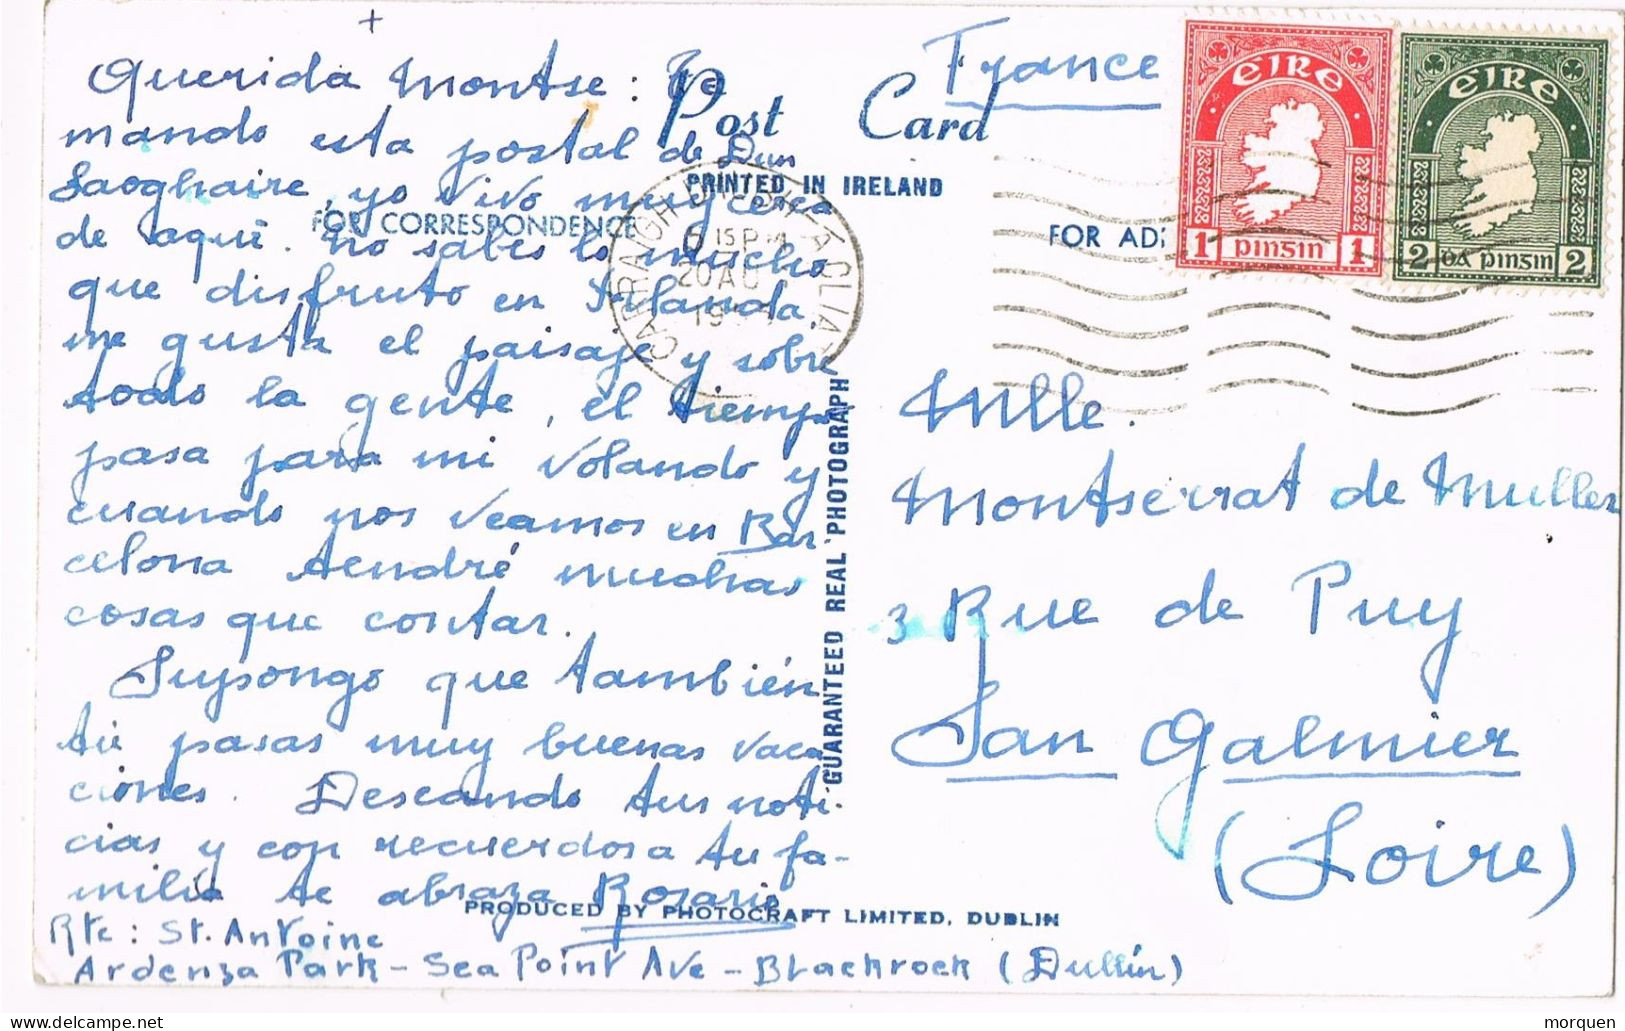 +
Querida Montse: Te
mando esta postal de Dun
Laoghaire, yo vivo muy cerca
de aquí. No sabes lo mucho
que disfruto en Irlanda,
me gusta el paisaje y sobre
todo la gente, el tiempo
pasa para mi volando y
cuando nos veamos en Bar-
celona tendré muchas
cosas que contar.
Supongo que también
tú pasas muy buenas vaca
ciones. Deseando tus noti-
cias y con recuerdos a tu fa-
milia te abraza Rosario
Rte: St. Antoine
Ardenza Park - Sea Point Ave - Blackrock (Dullín)
Post Card
PRINTED IN IRELAND
FOR CORRESPONDENCE
FOR AD
GUARANTEED REAL PHOTOGRAPH
PRODUCED BY PHOTOCRAFT LIMITED, DUBLIN
France
EIRE
1 pinsin 1
EIRE
2 DÁ pinsin 2
CARRAIGH
CLIAT
15 P M
20 AU
19
Mlle.
Montserrat de Muller
3 Rue de Puy
San Galmier
(Loire)
morquen